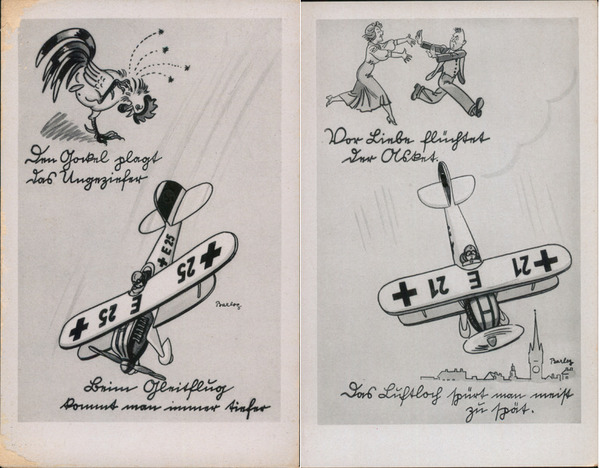 Den Gockel plagt
das Ungeziefer
E 25
25 E 25
Barlog
Beim Gleitflug
kommt man immer tiefer
Vor Liebe flüchtet
der Asket.
21 E 21
Barlog
Das Luftloch spürt man meist
zu spät.